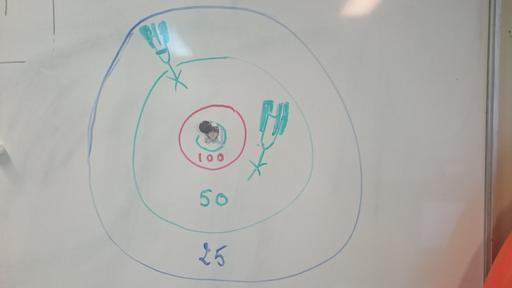 100
50
25